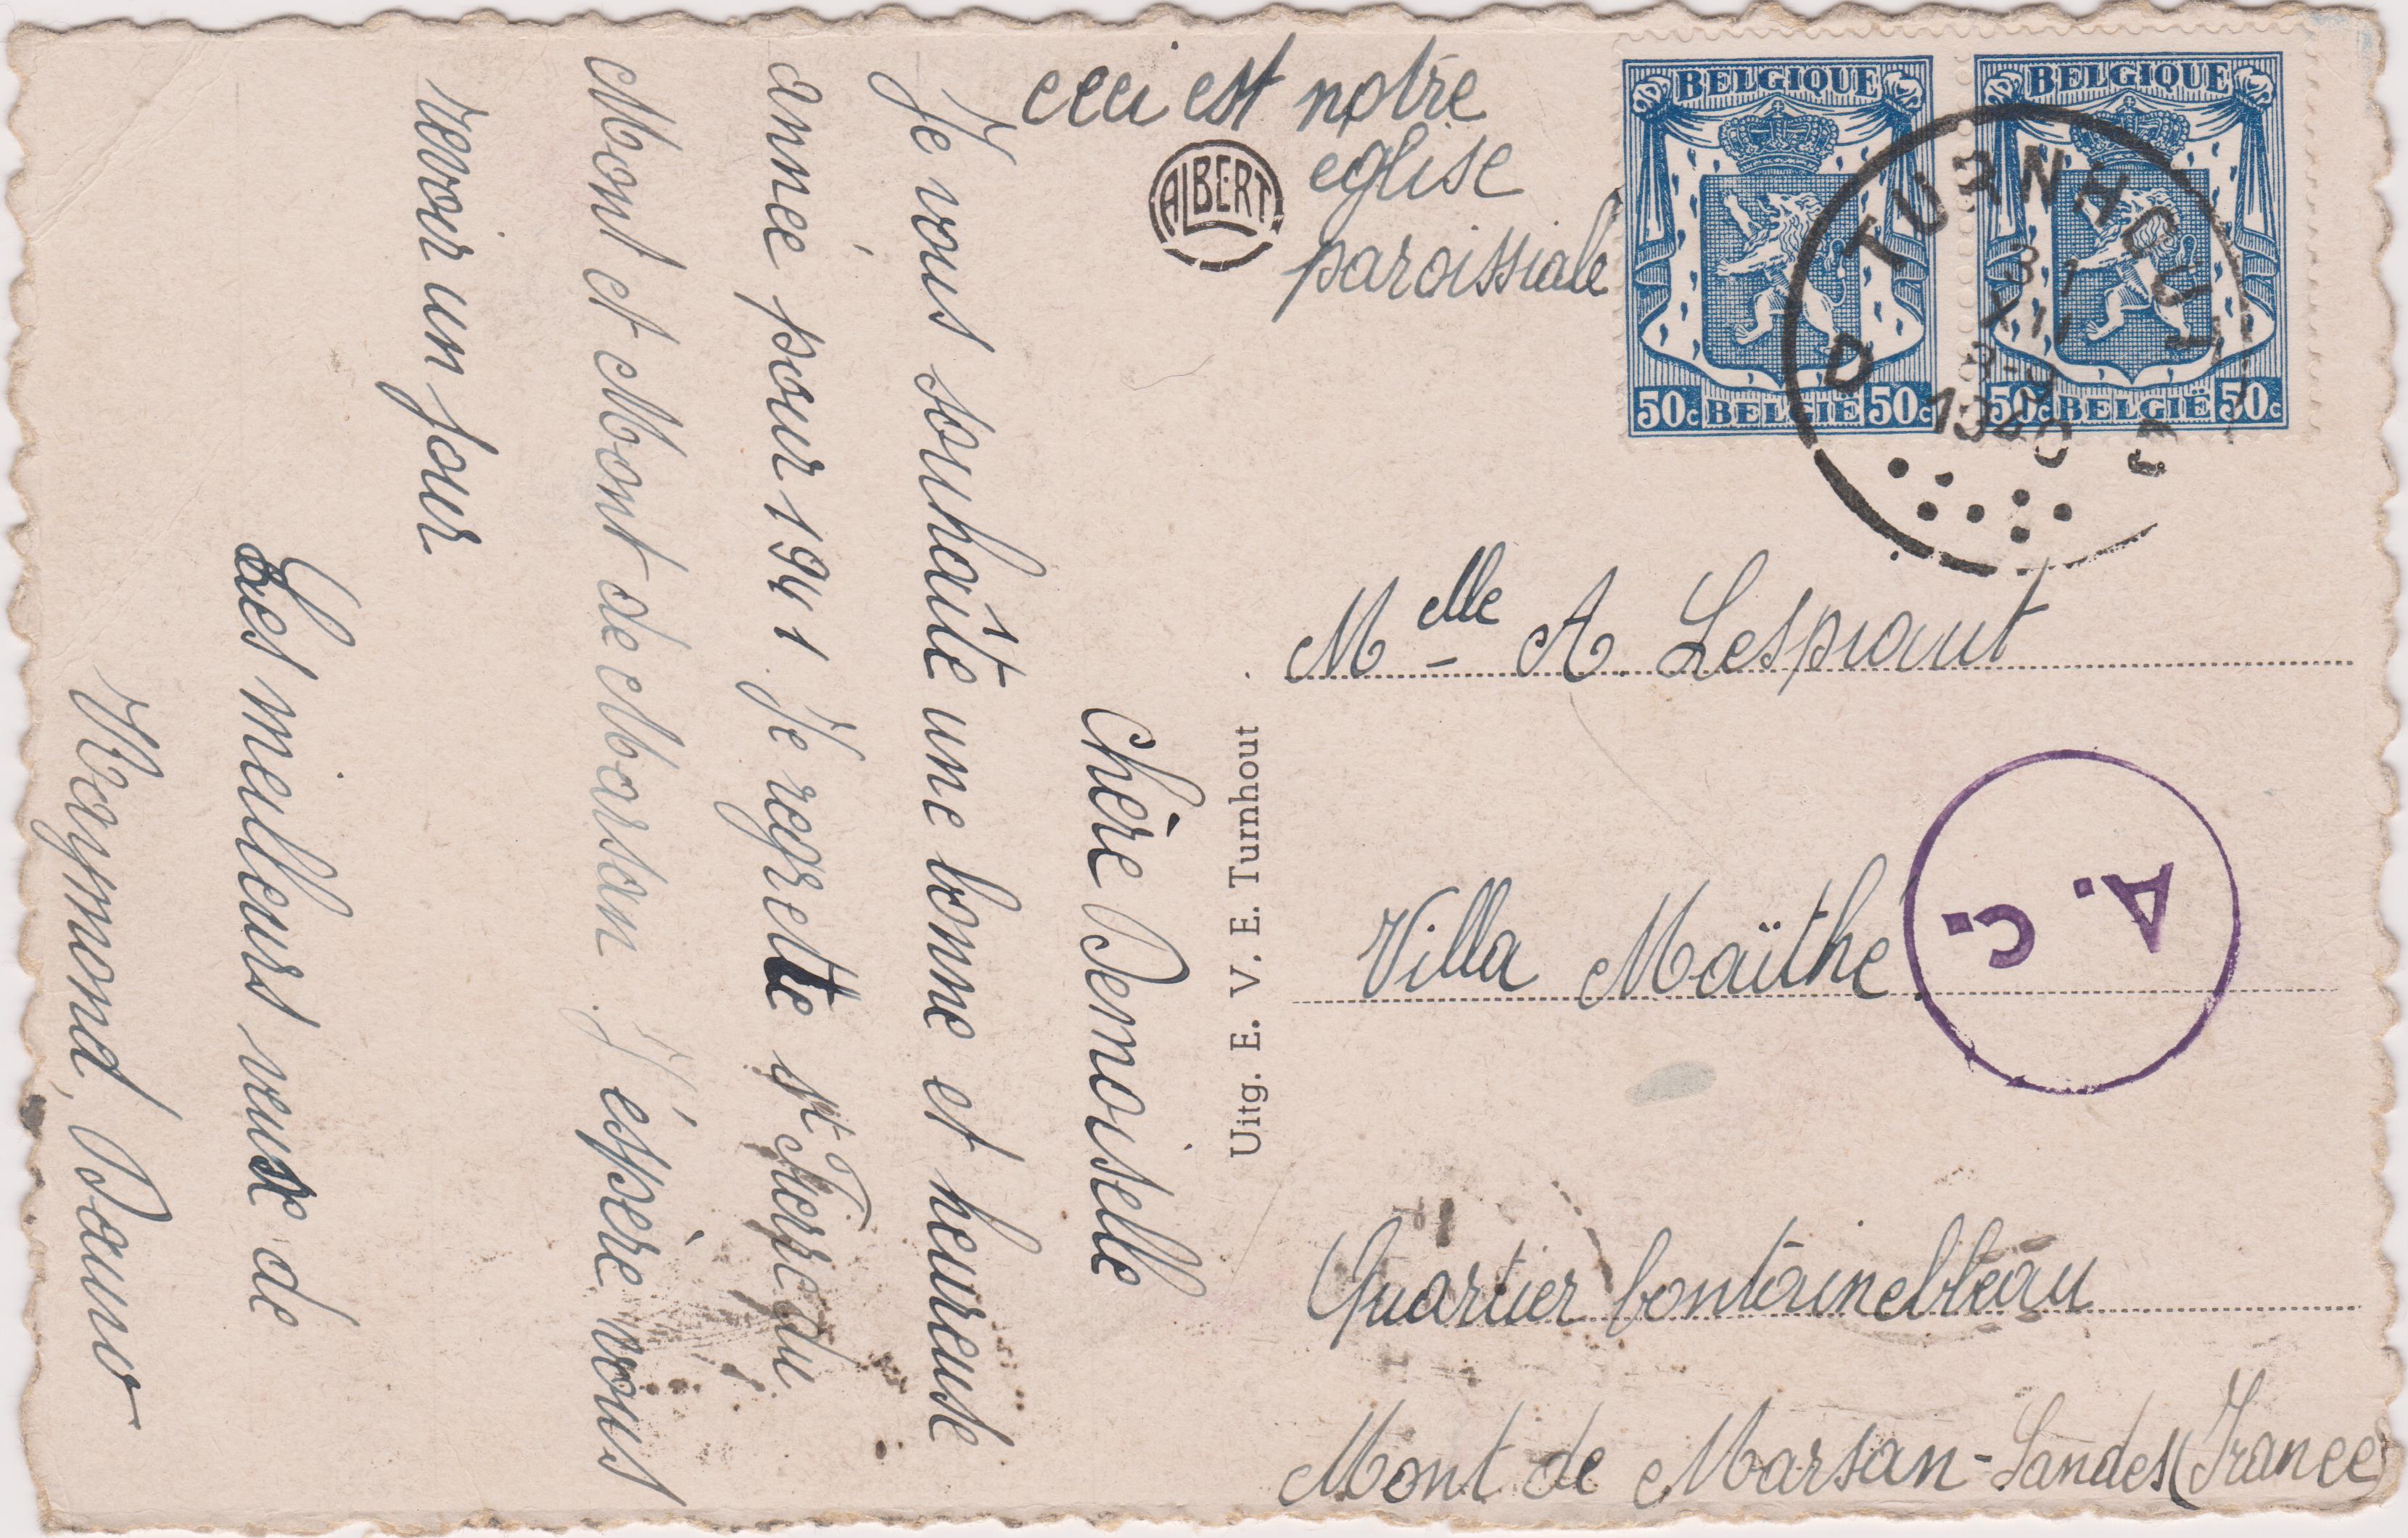 Chère Demoiselle
Je vous souhaîte une bonne et heureuse
année pour 1941. Je regrette st Pierre du
Mont et Mont de Marsan. J'éspère vous
revoir un jour
Les meilleurs veux de
Raymond
ceci est notre
eglise
paroissiale
ALBERT
Uitg. E. V. E. Turnhout
BELGIQUE BELGIQUE
50c BELGIË 50c 50c BELGIË 50c
TURNHOUT
31
XII
8-9
1940
D D
Melle A. Lespiaut
Villa Maïthe
C. A.
Quartier fontainebleau
Mont de Marsan-Landes(France)